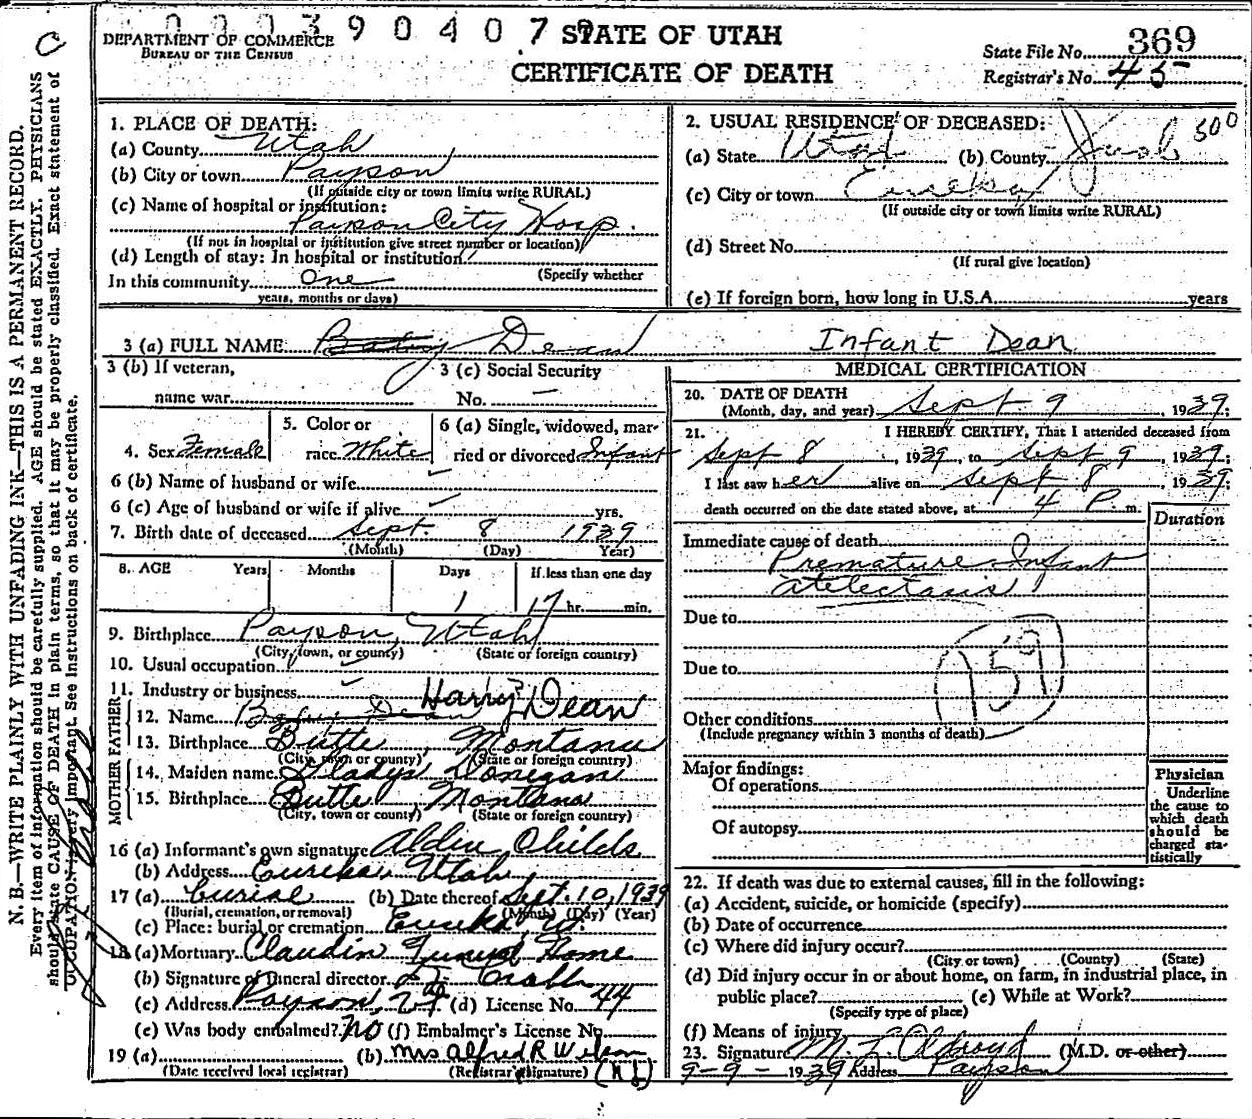 0 0 0 3 9 0 4 0 7 9
STATE OF UTAH
CERTIFICATE OF DEATH
DEPARTMENT OF COMMERCE
BUREAU OF THE CENSUS
State File No. 369
Registrar's No. 45
N. B.—WRITE PLAINLY WITH UNFADING INK—THIS IS A PERMANENT RECORD.
Every item of information should be carefully supplied. AGE should be stated EXACTLY. PHYSICIANS
should state CAUSE OF DEATH in plain terms, so that it may be properly classified. Exact statement of
OCCUPATION is very important. See Instructions on back of certificate.
1. PLACE OF DEATH:
(a) County Utah
(b) City or town Payson
(If outside city or town limits write RURAL)
(c) Name of hospital or institution:
Payson City Hosp.
(If not in hospital or institution give street number or location)
(d) Length of stay: In hospital or institution 1
(Specify whether
In this community One
years, months or days)
2. USUAL RESIDENCE OF DECEASED:
500
(a) State Utah (b) County Juab
(c) City or town Eureka
(If outside city or town limits write RURAL)
(d) Street No.
(If rural give location)
(e) If foreign born, how long in U.S.A. years
3 (a) FULL NAME Baby Dean Infant Dean
3 (b) If veteran,
name war
3 (c) Social Security
No. —
4. Sex Female
5. Color or
race White
6 (a) Single, widowed, mar-
ried or divorced Infant
6 (b) Name of husband or wife
6 (c) Age of husband or wife if alive yrs.
7. Birth date of deceased Sept. 8 1939
(Month) (Day) Year)
8. AGE Years Months Days If less than one day
1 17 hr. min.
9. Birthplace Payson, Utah
(City, town, or county) (State or foreign country)
10. Usual occupation
11. Industry or business
FATHER
12. Name Baby Dean Harry Dean
13. Birthplace Butte, Montana
(City, town or county) (State or foreign country)
MOTHER
14. Maiden name Gladys Donegan
15. Birthplace Butte, Montana
(City, town or county) (State or foreign country)
16 (a) Informant's own signature Aldin Childs
(b) Address Eureka Utah
17 (a) burial (b) Date thereof Sept. 10, 1939
(Burial, cremation, or removal) (Month) (Day) (Year)
(c) Place: burial or cremation Eureka, Ut.
18 (a) Mortuary Claudin Funeral Home
(b) Signature of funeral director
(c) Address Payson, Ut (d) License No. 44
(e) Was body embalmed? No (f) Embalmer's License No.
19 (a) (b) Mrs Alfred R Wilson
(Date received local registrar) (Registrar's signature)
MEDICAL CERTIFICATION
20. DATE OF DEATH
(Month, day, and year) Sept 9, 1939;
21. I HEREBY CERTIFY, That I attended deceased from
Sept 8, 1939, to Sept 9, 1939;
I last saw her alive on Sept 8, 1939;
death occurred on the date stated above, at 4 P. m.
Duration
Immediate cause of death
Premature Infant
atelectasis
Due to
159
Due to
Other conditions
(Include pregnancy within 3 months of death)
Major findings:
Of operations
Of autopsy
Physician
Underline
the cause to
which death
should be
charged sta-
tistically
22. If death was due to external causes, fill in the following:
(a) Accident, suicide, or homicide (specify)
(b) Date of occurrence
(c) Where did injury occur?
(City or town) (County) (State)
(d) Did injury occur in or about home, on farm, in industrial place, in
public place? (e) While at Work?
(Specify type of place)
(f) Means of injury
23. Signature M. L. Oldroyd (M.D. or other)
9-9-1939 Address Payson